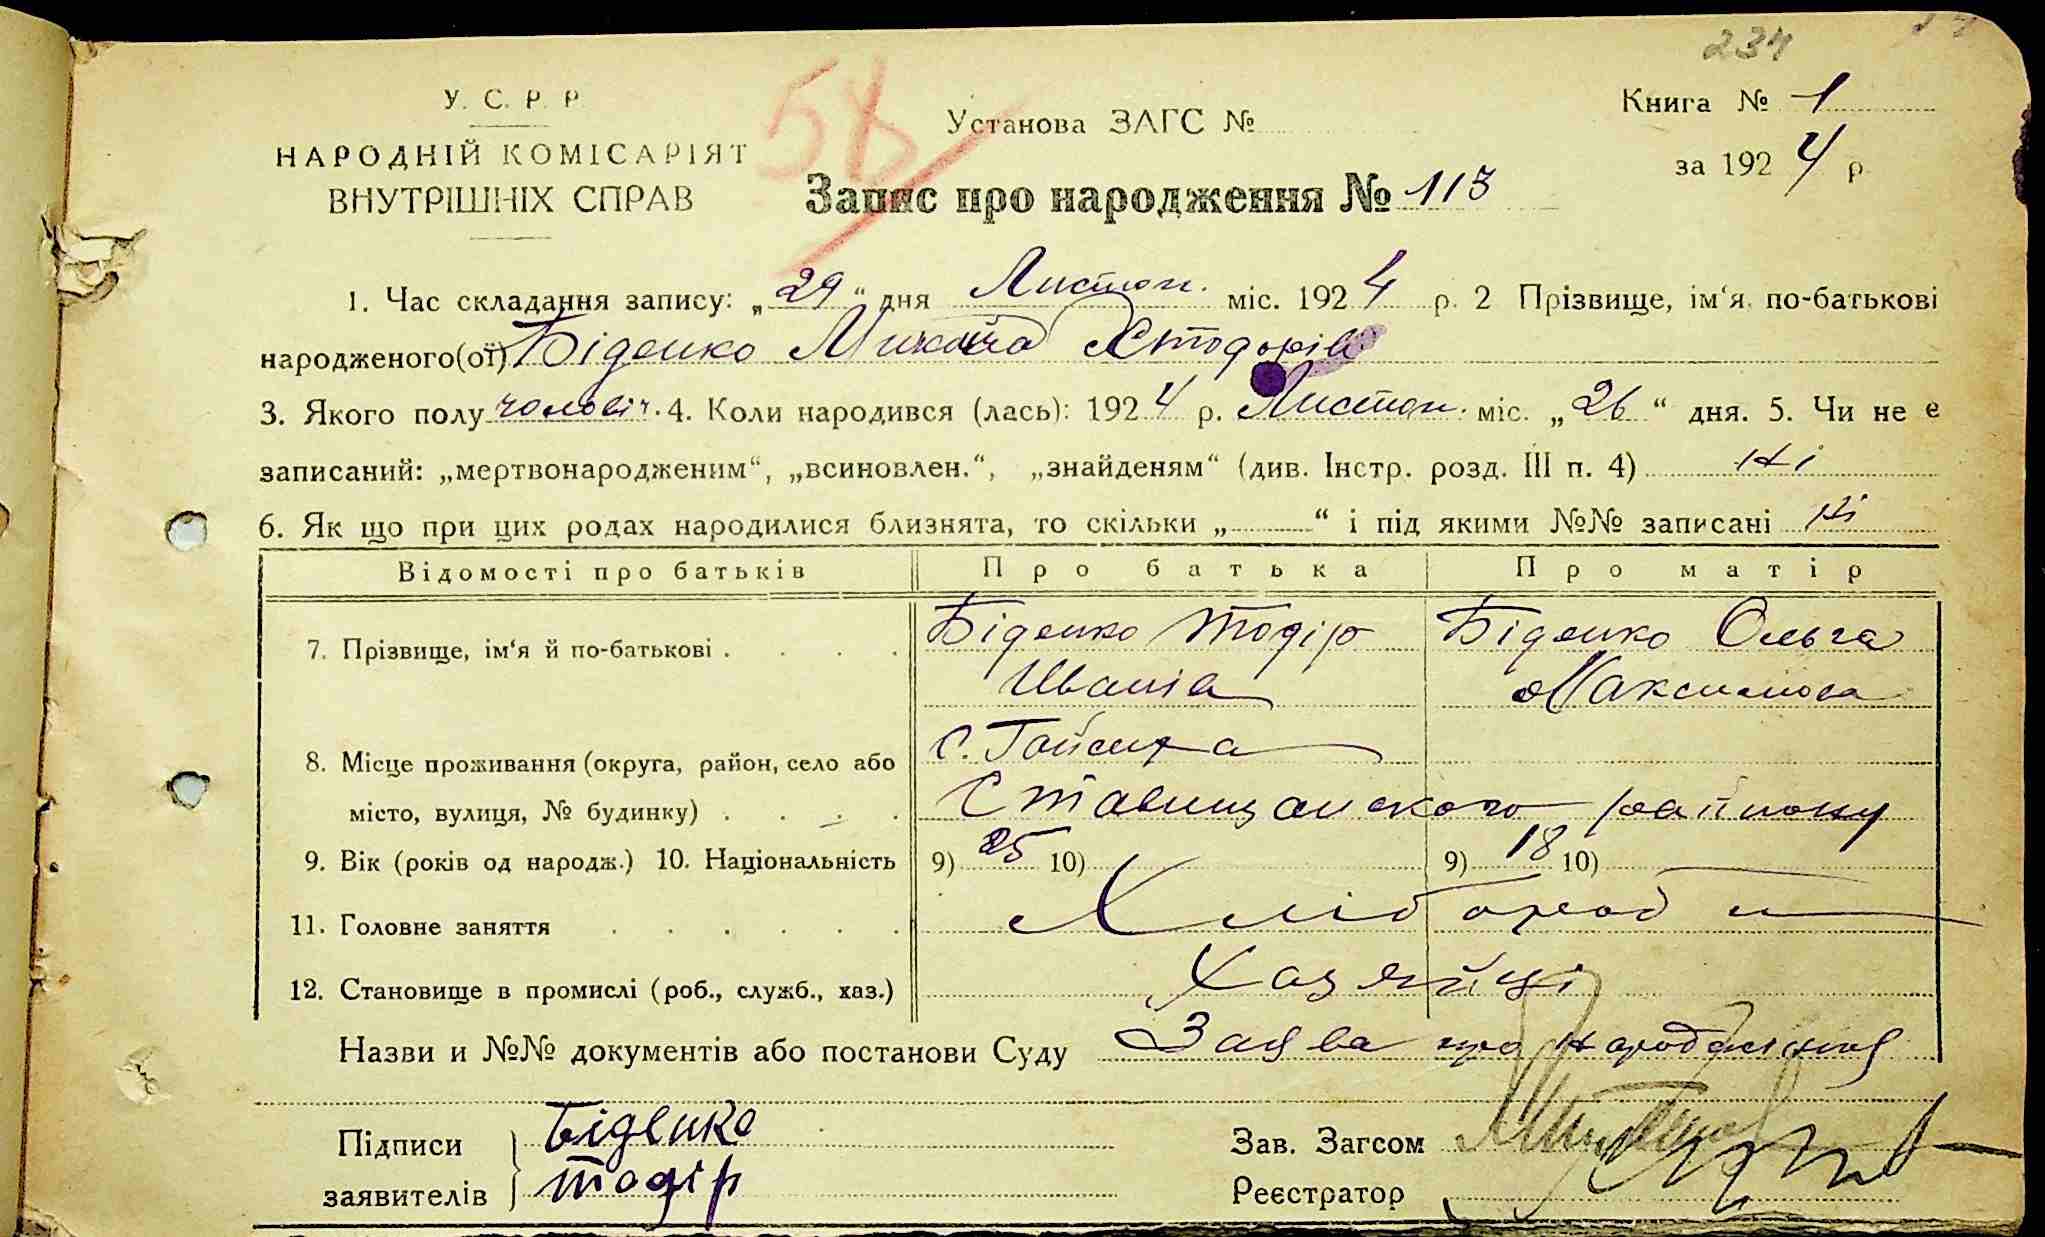 234
У. С. Р. Р.
Установа ЗАГС №
Книга № 1
НАРОДНІЙ КОМІСАРІЯТ
за 1924 р.
ВНУТРІШНІХ СПРАВ
Запис про народження № 113
1. Час складання запису: „29“ дня Листоп. міс. 1924 р. 2 Прізвище, ім‘я, по-батькові
народженого(ої) Біденко Микита Хтодорів
3. Якого полу чоловіч. 4. Коли народився (лась): 1924 р. Листоп. міс. „26“ дня. 5. Чи не є
записаний: „мертвонародженим“, „всиновлен.“, „знайденям“ (див. Інстр. розд. III п. 4) Ні
6. Як що при цих родах народилися близнята, то скільки „ “ і під якими №№ записані Ні
Відомості про батьків Про батька Про матір
7. Прізвище, ім‘я й по-батькові . . . . Біденко Тодір Біденко Ольга
Иванів Максимова
8. Місце проживання (округа, район, село або с. Гайсиха
місто, вулиця, № будинку) . . . . Ставищанского району
9. Вік (років од народж.) 10. Національність 9) 25 10) 9) 18 10)
11. Головне заняття . . . . . . Хлібороб
12. Становище в промислі (роб., служб., хаз.) Хазяйці
Назви и №№ документів або постанови Суду Заява про народження
Підписи Біденко
Зав. Загсом
заявителів Тодір
Реєстратор